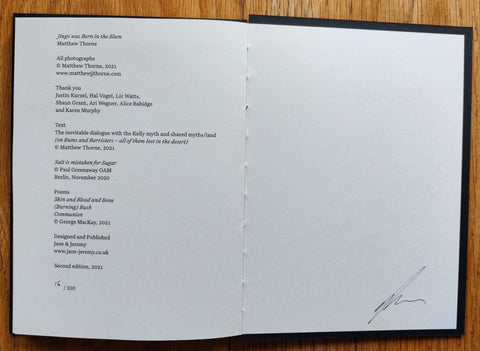 Jingo was Born in the Slum
Matthew Thorne
All photographs
© Matthew Thorne, 2021
www.matthewjthorne.com
Thank you
Justin Kurzel, Hal Vogel, Liz Watts,
Shaun Grant, Ari Wegner, Alice Babidge
and Karen Murphy
Text
The inevitable dialogue with the Kelly myth and shared myths/land
(on Bums and Barristers – all of them lost in the desert)
© Matthew Thorne, 2021
Salt is mistaken for Sugar
© Paul Greenaway OAM
Berlin, November 2020
Poems
Skin and Blood and Bone
(Burning) Bush
Communion
© George MacKay, 2021
Designed and Published
Jane & Jeremy
www.jane-jeremy.co.uk
Second edition, 2021
16 / 100